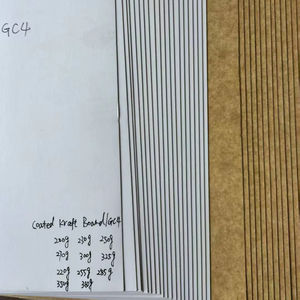 GC4
Coated Kraft Board/GC4
200g 230g 250g
270g 300g 325g
220g 255g 285g
350g 380g